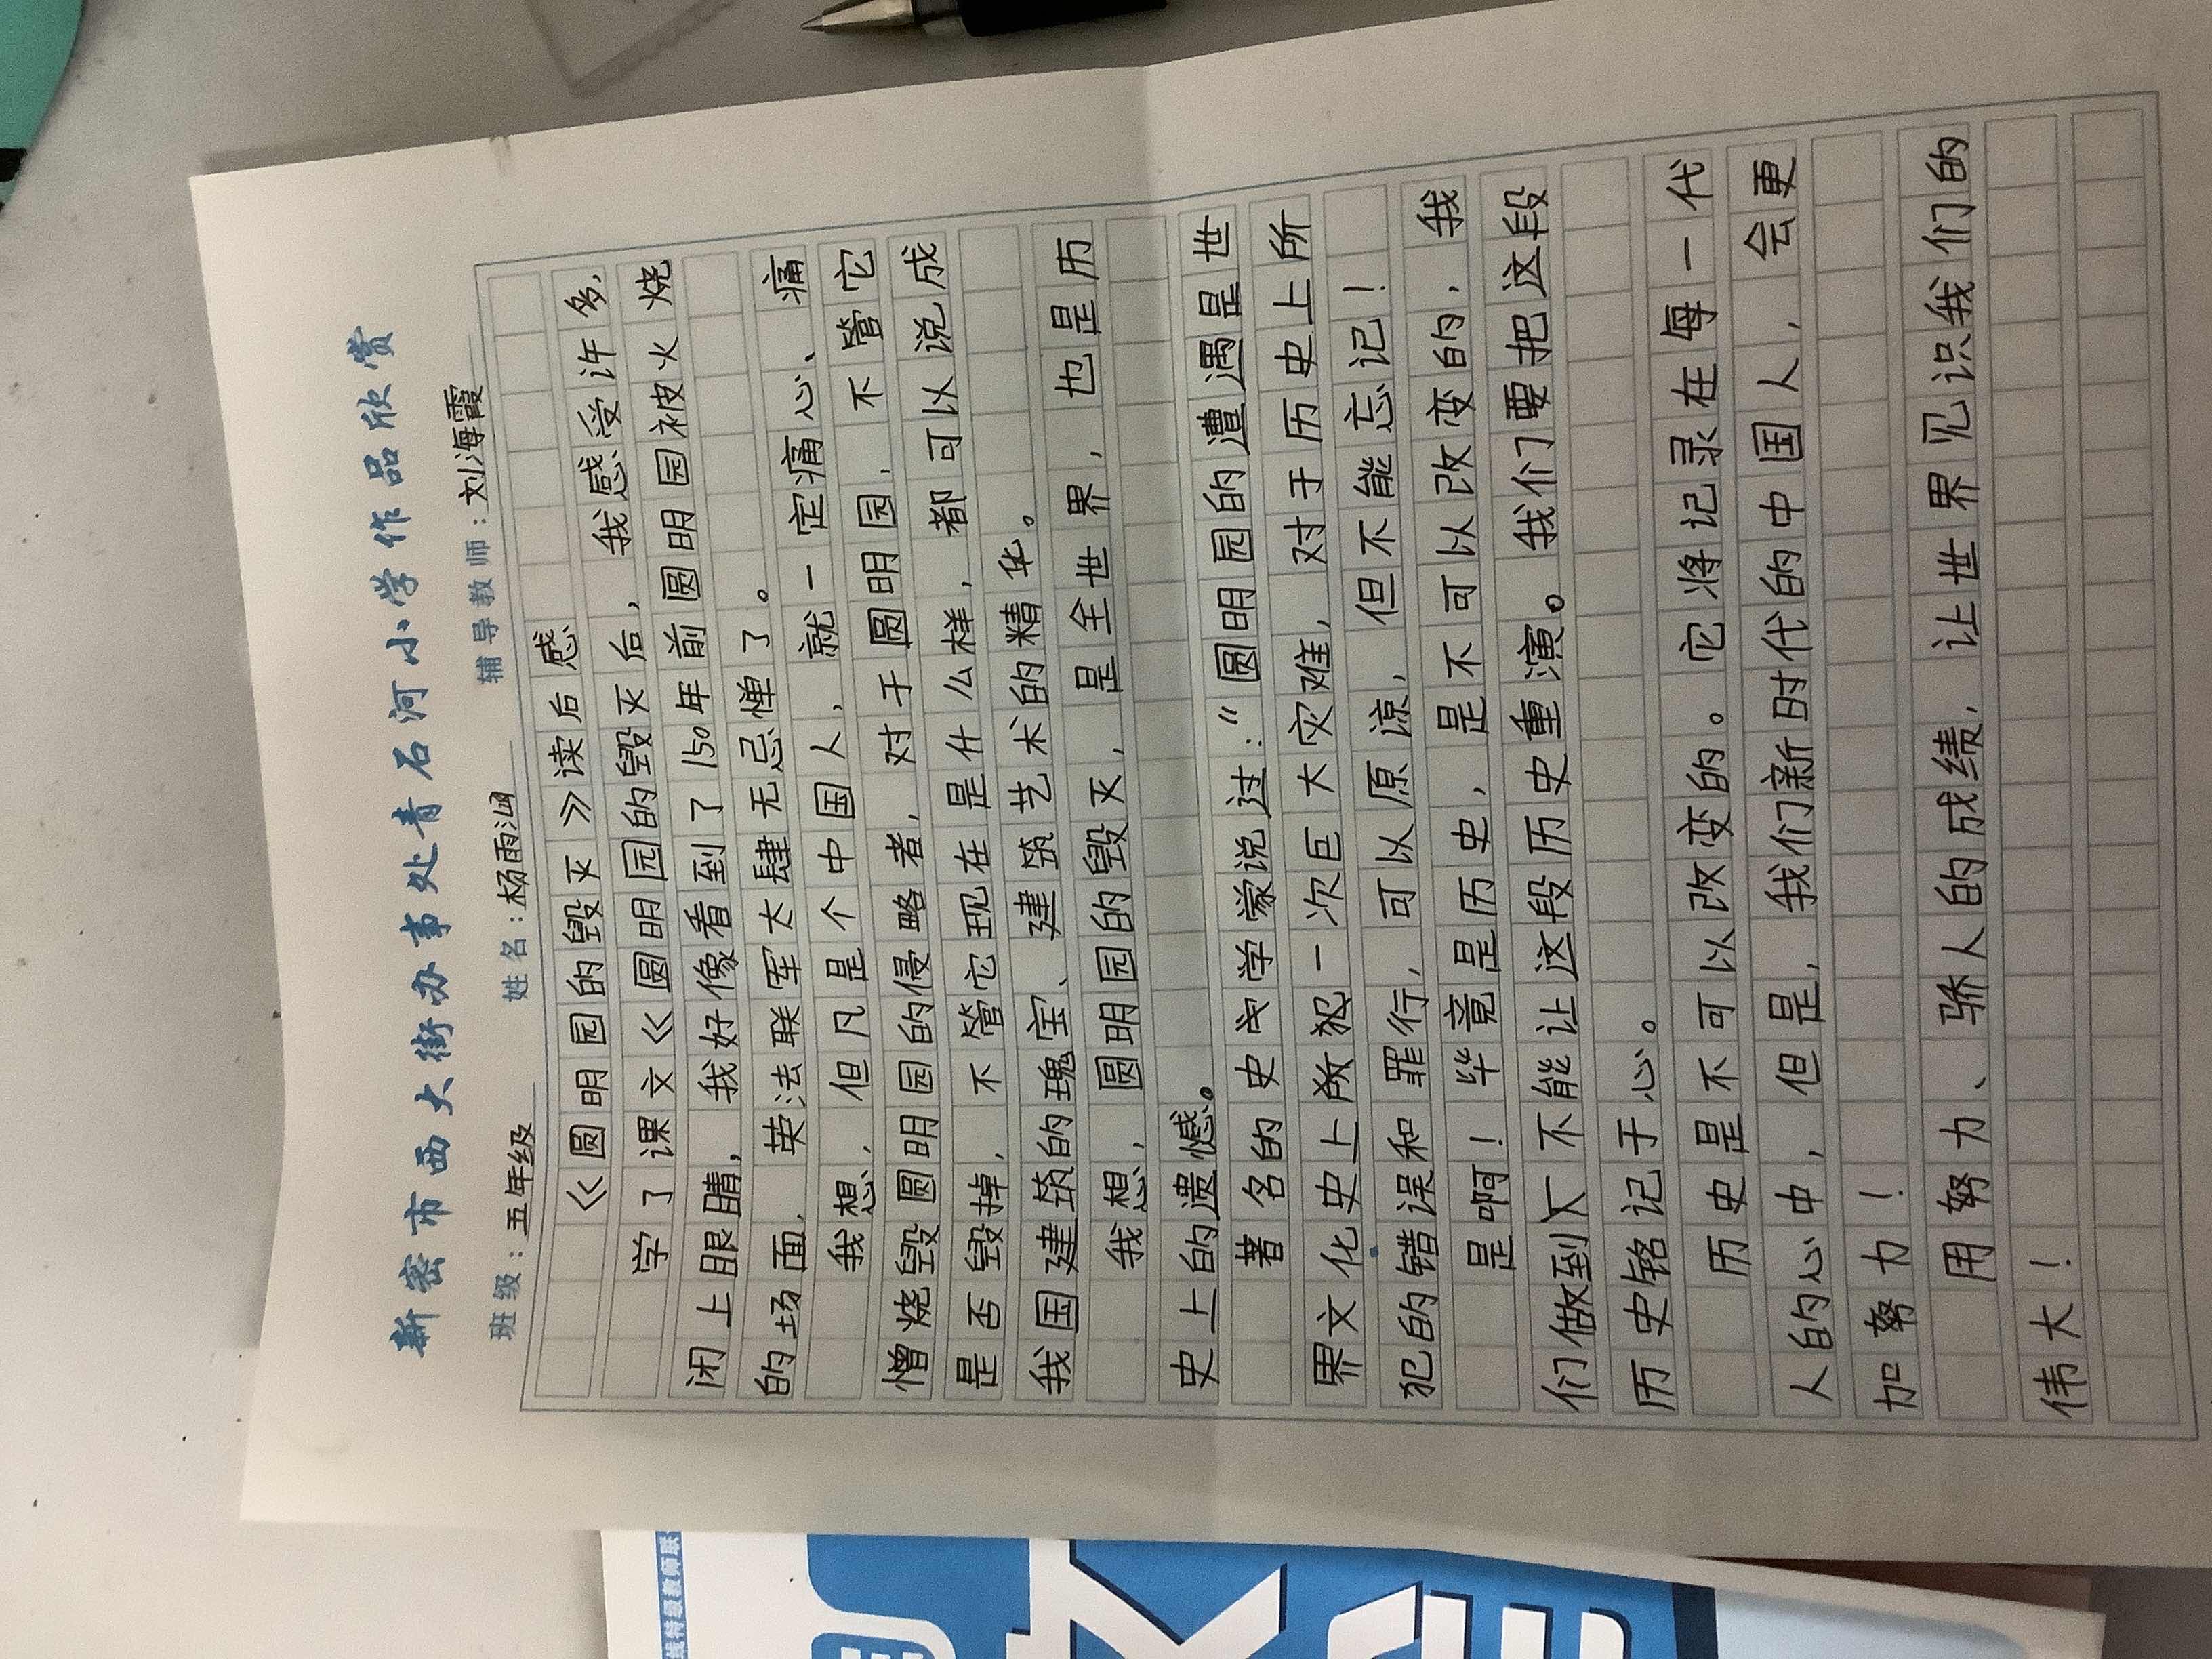 新密市西大街办事处青石河小学作品欣赏
班级：五年级 姓名：杨雨涵 辅导教师：刘海霞
《圆明园的毁灭》读后感
学了课文《圆明园的毁灭后，我感受许多，
闭上眼睛，我好像看到了150年前圆明园被火烧
的场面，英法联军大肆无忌惮了。
我想，但凡是个中国人，就一定痛心、痛
憎烧毁圆明园的侵略者，对于圆明园，不管它
是否毁掉，不管它现在是什么样，都可以说成
我国建筑的瑰宝、建筑艺术的精华。
我想，圆明园的毁灭，是全世界，也是历
史上的遗憾。
著名的史学家说过：“圆明园的遭遇是世
界文化史上所犯一次巨大灾难，对于历史上所
犯的错误和罪行，可以原谅，但不能忘记！
是啊！毕竟是历史，是不可以改变的，我
们做到不能让这段历史重演。我们要把这段
历史铭记于心。
历史是不可以改变的。它将记录在每一代
人的心中，但是，我们新时代的中国人，会更
加努力！
用努力、骄人的成绩，让世界见识我们的
伟大！
线特级教师联